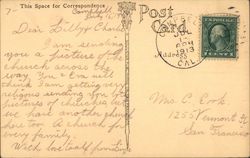 This Space for Correspondence
Post
Card
1913
CAL.
Dear Lilly & Charlie
I am sending
you a picture of the
church across the
way. You & Em will
think I am getting very
religious sending you the
pictures of churches but
we have another
here too. A church for
every family.
With love to all from
Mrs. C. Cook
1255 Vermont St
San Francisco